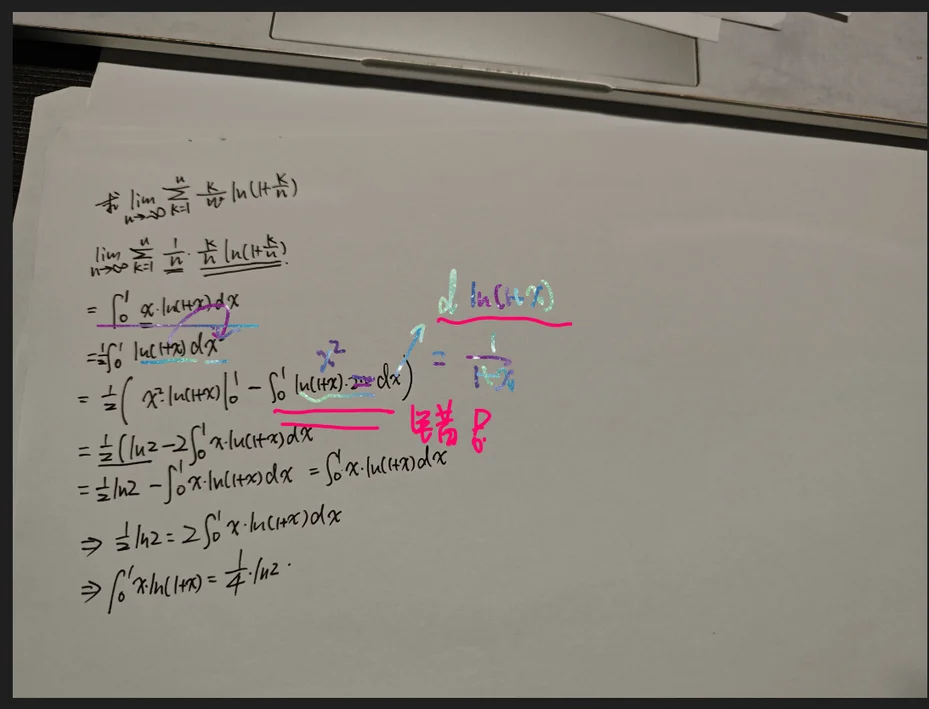 求 lim_{n→∞} ∑_{k=1}^{n} k/n² ln(1+k/n)
lim_{n→∞} ∑_{k=1}^{n} 1/n · k/n ln(1+k/n).
= ∫₀¹ x·ln(1+x)dx
d ln(1+x)
= ½∫₀¹ ln(1+x) dx²
= 1/(1+x)
x²
= ½( x²·ln(1+x)|₀¹ − ∫₀¹ ln(1+x)·2x dx)
= ½(ln2 − 2∫₀¹ x·ln(1+x)dx
= ½ln2 − ∫₀¹ x·ln(1+x)dx = ∫₀¹ x·ln(1+x)dx
⇒ ½ln2 = 2∫₀¹ x·ln(1+x)dx
⇒ ∫₀¹ x·ln(1+x) = ¼·ln2.